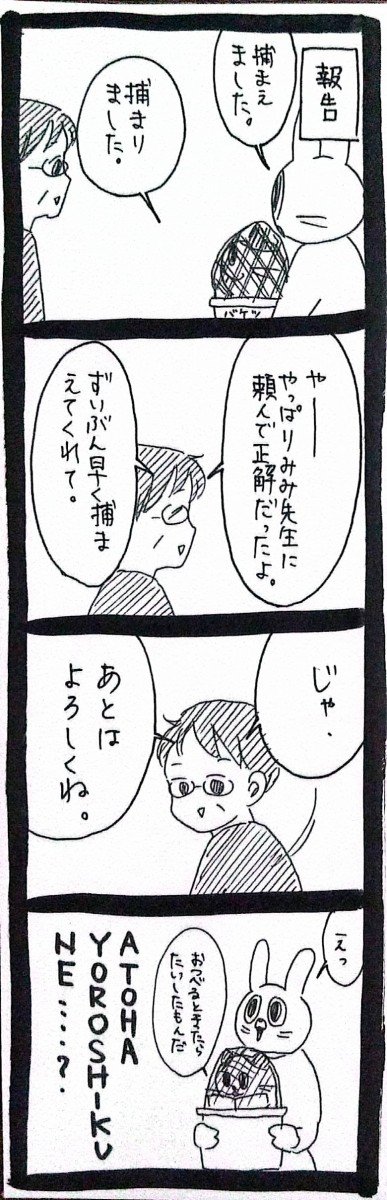 報告
捕まえ
ました。
捕まり
ました。
バケツ
やー
やっぱりみみ先生に
頼んで正解だったよ。
ずいぶん早く捕ま
えてくれて。
じゃ、
あとは
よろしくね。
えっ
おつべるときたら
たいしたもんだ
ATOHA
YOROSHIKU
NE....?